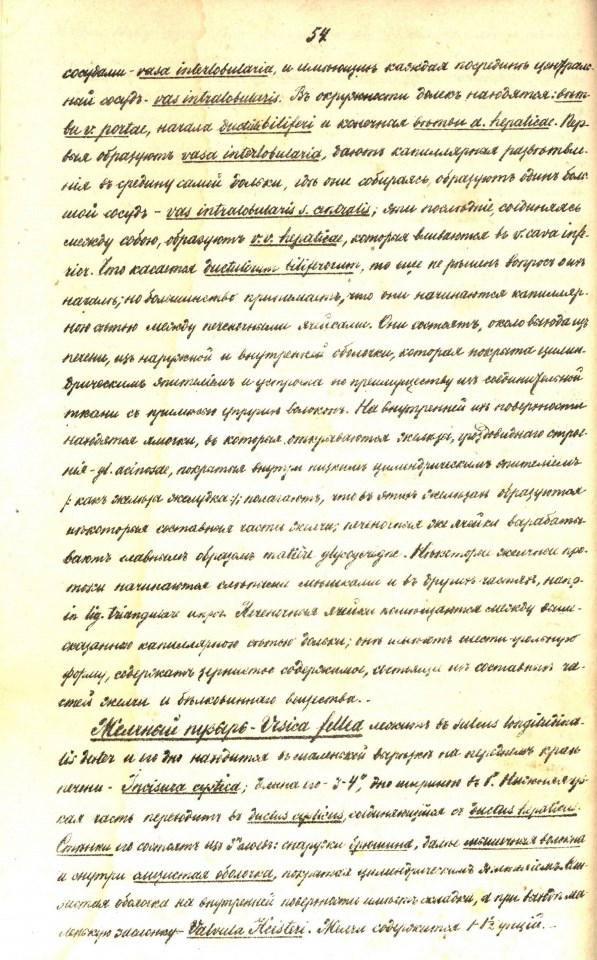 54
сосудами – vasa interlobularia, и имѣющихъ каждая посрединѣ централь-
ный сосудъ – vas intralobularis. Въ окружности долекъ находятся: вѣт-
ви v. portae, начала ductus biliferi и конечныя вѣтви a. hepaticae. Пер-
выя образуютъ vasa interlobularia, даютъ капиллярныя развѣтвле-
нія въ средину самой дольки, гдѣ они собираясь, образуютъ одинъ боль-
шой сосудъ – vas intralobularis s. centralis; эти послѣдніе, соединяясь
между собою, образуютъ v.v. hepaticae, которыя вливаются въ v. cava infe-
rior. Что касается ductulorum biliferorum, то еще не рѣшенъ вопросъ о ихъ
началѣ; но большинство принимаетъ, что они начинаются капилляр-
ною сѣтью между печеночными ячейками. Они состоятъ, около выхода изъ
печени, изъ наружной и внутренней оболочки, которая покрыта цилин-
дрическимъ эпителіемъ и устроена по преимуществу изъ соединительной
ткани съ примѣсью упругихъ волоконъ. На внутренней ихъ поверхности
находятся ямочки, въ которыя открываются железы, гроздовиднаго строе-
нія – gl. acinosae, покрытыя внутри низкимъ цилиндрическимъ эпителіемъ
/: какъ железа желудка :/; полагаютъ, что въ этихъ железахъ образуются
нѣкоторыя составныя части желчи; печеночныя же ячейки вырабаты-
ваютъ главнымъ образомъ matière glycogène. Нѣкоторые желчные про-
токи начинаются слѣпыми мѣшками и въ другихъ частяхъ, напр.
in lig. triangulare и проч. Печеночныя ячейки помѣщаются между выше-
сказанною капиллярною сѣтью дольки; онѣ имѣютъ шести-угольную
форму, содержатъ зернистое содержимое, состоящее изъ составныхъ ча-
стей желчи и бѣлковиннаго вещества. –
Желчный пузырь – Vesica fellea лежитъ въ sulcus longitudina-
lis dexter и его дно находится въ маленькой вырѣзкѣ на переднемъ краѣ
печени – Incisura cystica; длина его – 3-4", дно шириною въ 1". Нижняя уз-
кая часть переходитъ въ ductus cysticus, соединяющійся съ ductus hepaticus.
Стѣнки его состоятъ изъ 3 слоевъ: снаружи брюшина, далѣе мышечныя волокна
и снутри слизистая оболочка, покрытая цилиндрическимъ эпителіемъ. Сли-
зистая оболочка на внутренней поверхности имѣетъ складки, а при входѣ ма-
ленькую заслонку – Valvula Heisteri. Желчи содержится 1-1½ унціи. –